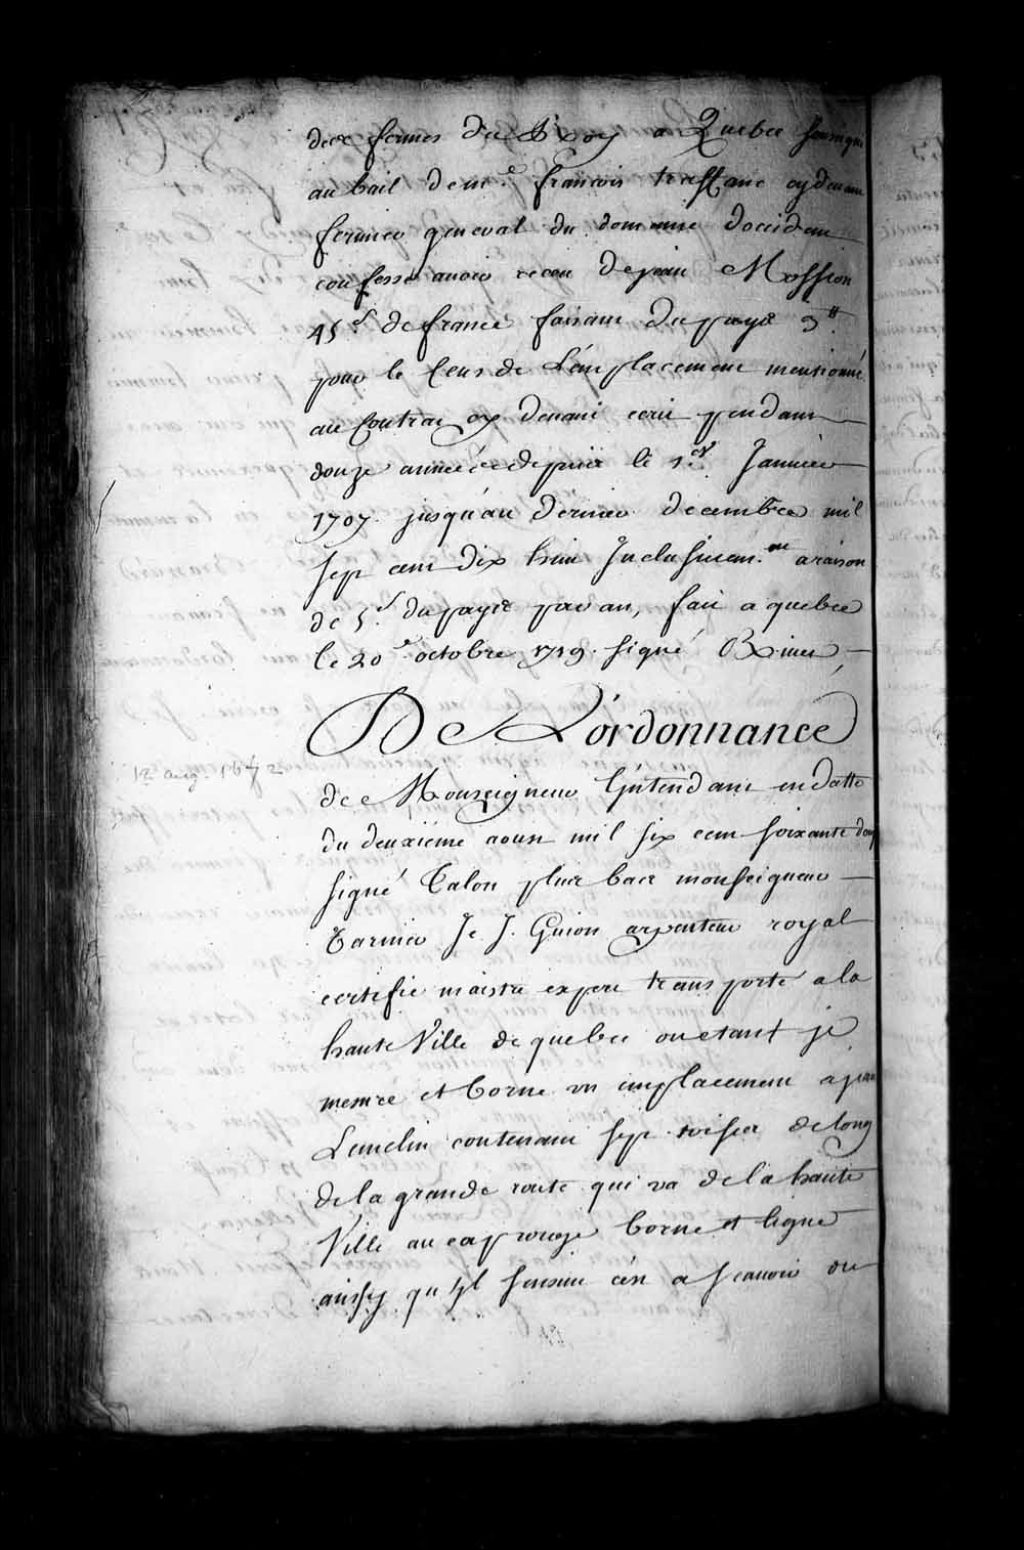 des fermes du Roy a Quebec soussigné
au bail de m.e francois traffane cy devant
fermier general du domaine doccident
confesse avoir receu de jean Mossion
45.s de france faisant du payis 3.tt
pour le Cens de Lemplacement mentionné
au Contrac cy devant ecrit pendant
douze années depuis le 1.er Janvier
1707. jusqu'au dernier decembre mil
sept cent dix huit Inclusivem.nt a raison
de 5.s du payis par an, fait a quebec
le 20.e octobre 1719. signé
De L'ordonnance
12 aug. 1672
de Monseigneur L'intendant en datte
du deuxiéme aoust mil six cent soixante dou
signé Talon plus bas monseigneur
Varnier Je J. Guion arpenteur royal
certifie maistre expert transporté a la
haute Ville de quebec ou etant je
mesuré et borné un emplacement a jean
Lemelin contenant sept toises de long
de la grande route qui va de la haute
Ville au cap rouge borne et ligne
aussy qu'yl sensuit c'est a scavoir du